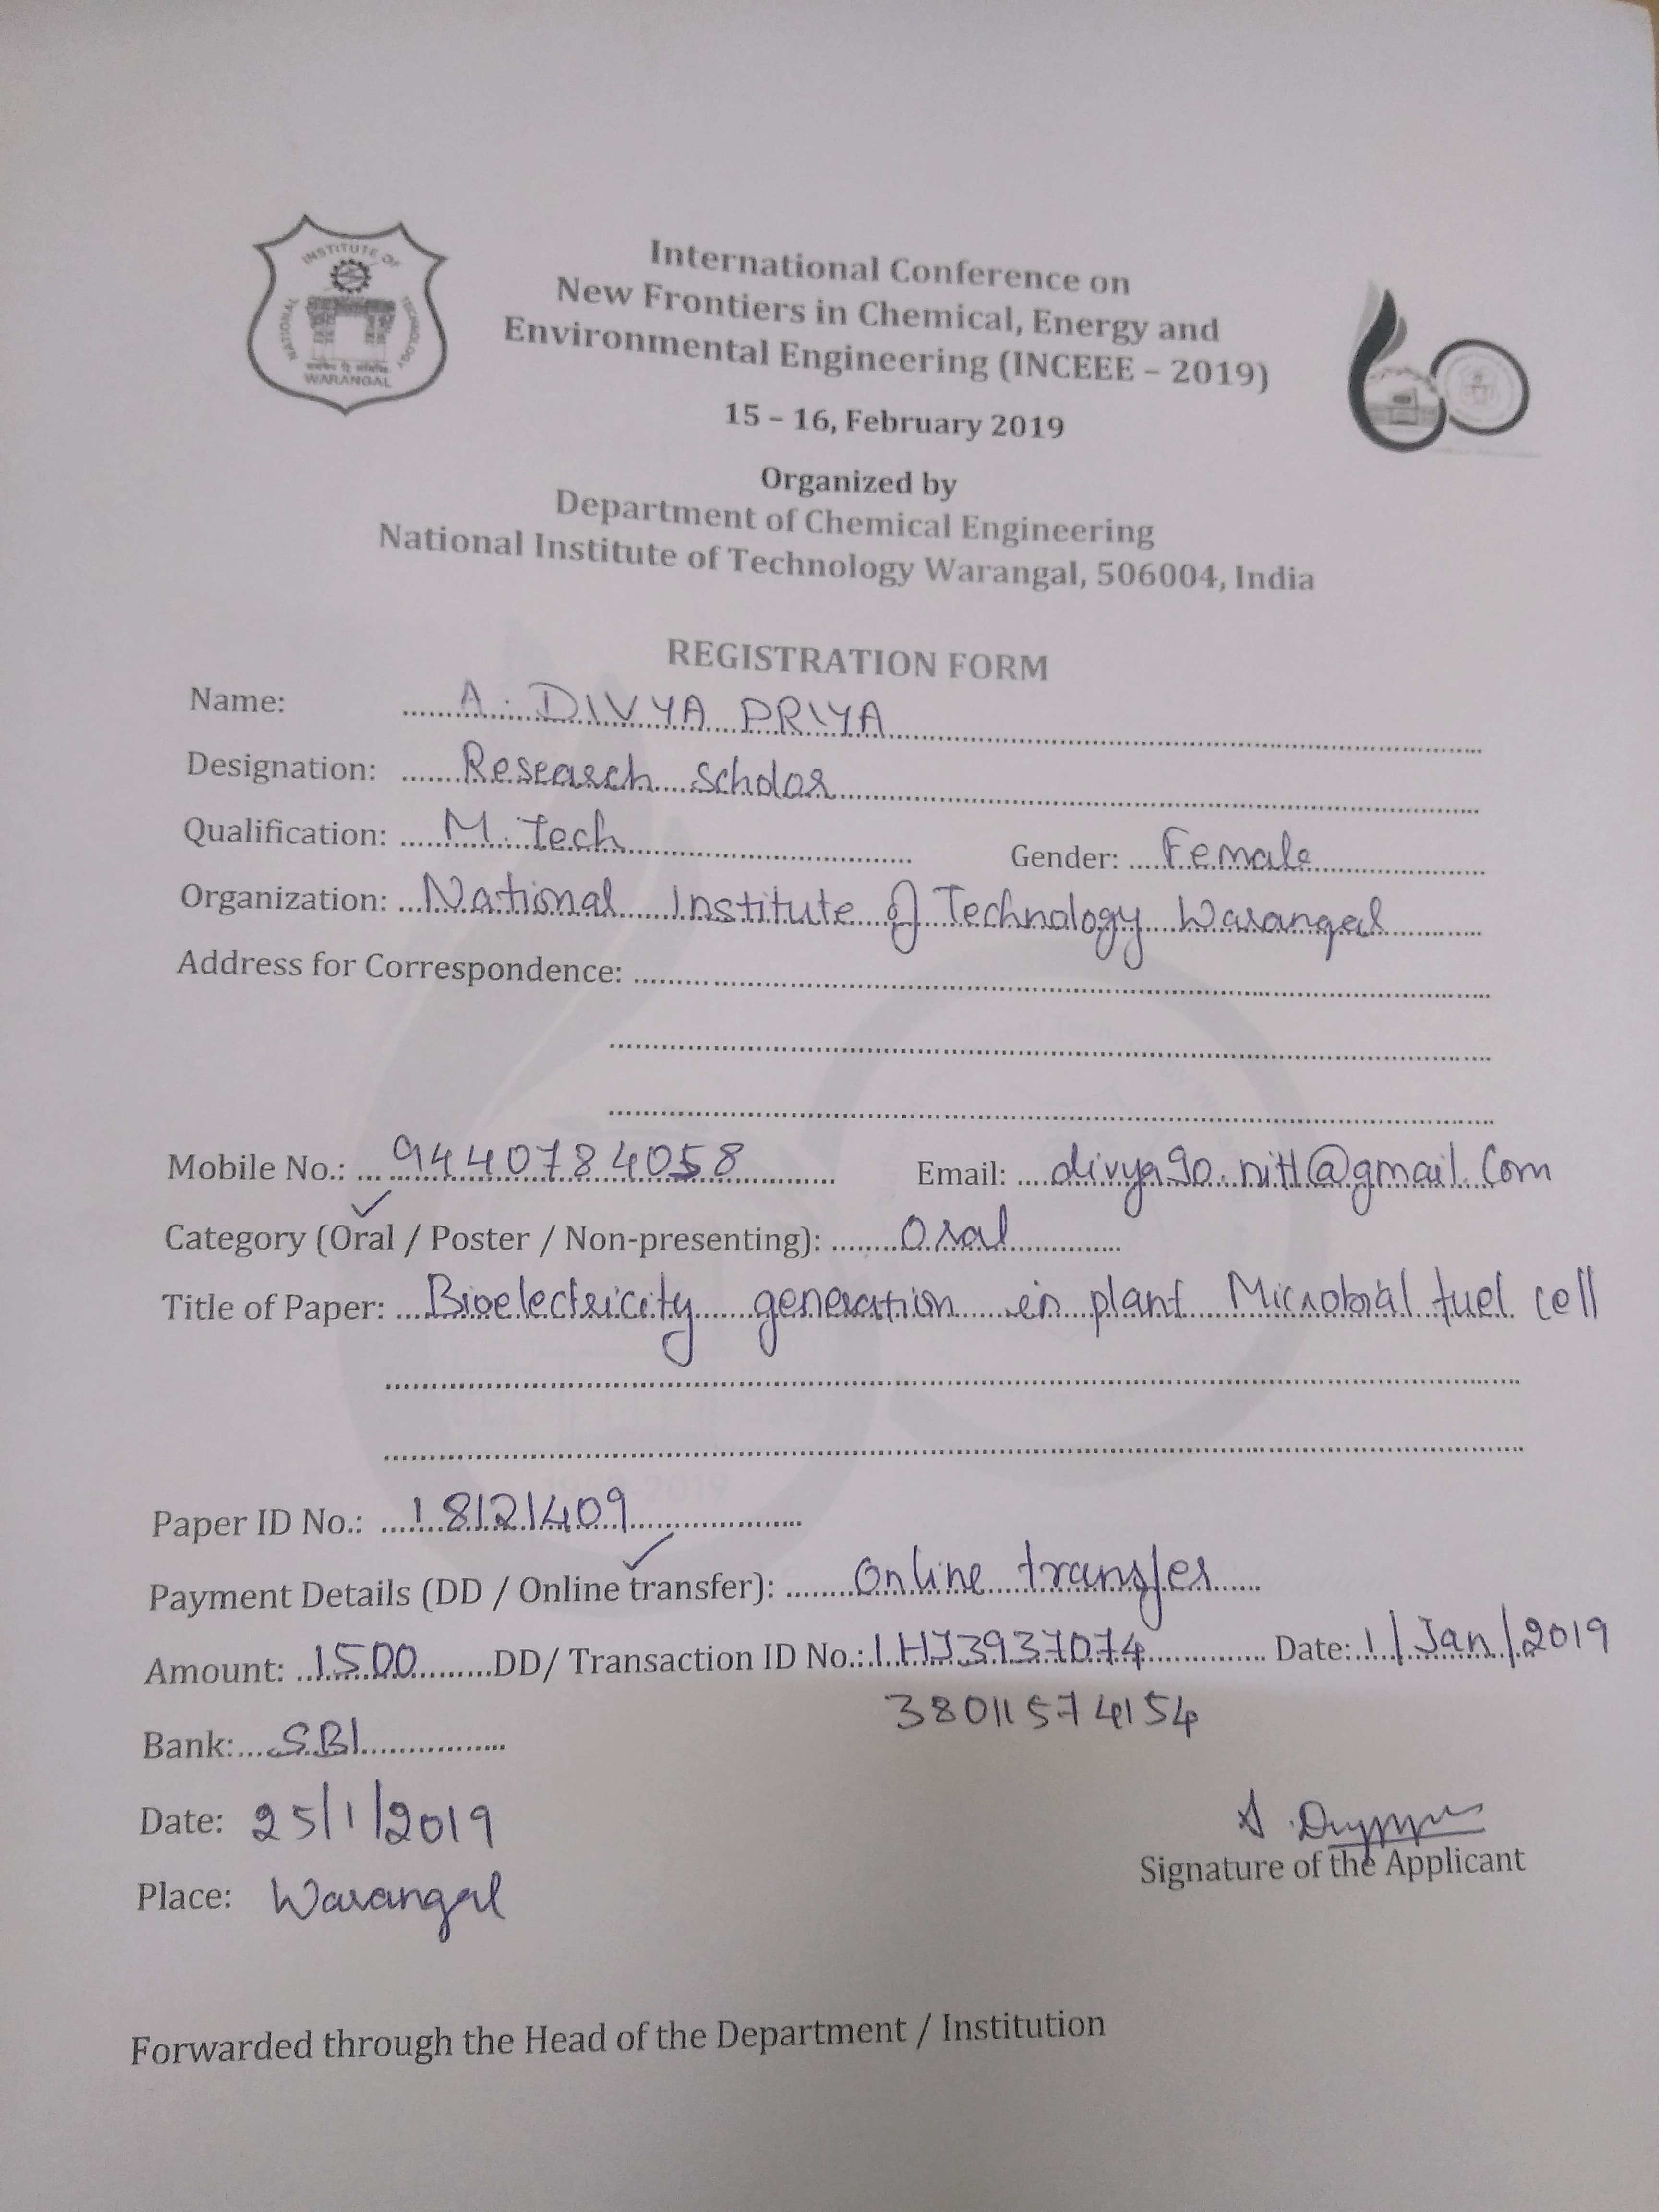 INSTITUTE OF
NATIONAL
TECHNOLOGY
WARANGAL
International Conference on
New Frontiers in Chemical, Energy and
Environmental Engineering (INCEEE – 2019)
15 – 16, February 2019
Organized by
Department of Chemical Engineering
National Institute of Technology Warangal, 506004, India
REGISTRATION FORM
Name: A. DIVYA PRIYA
Designation: Research scholar
Qualification: M.Tech Gender: Female
Organization: National Institute of Technology Warangal
Address for Correspondence:
Mobile No.: 9440784058 Email: divya90.nitt@gmail.com
Category (Oral / Poster / Non-presenting): Oral
Title of Paper: Bioelectricity generation in plant Microbial fuel cell
Paper ID No.: 18121409
Payment Details (DD / Online transfer): Online transfer
Amount: 1500 DD/ Transaction ID No.: 1HJ3937074 Date: 1/Jan/2019
38011574154
Bank: SBI
Date: 25/1/2019
Signature of the Applicant
Place: Warangal
Forwarded through the Head of the Department / Institution